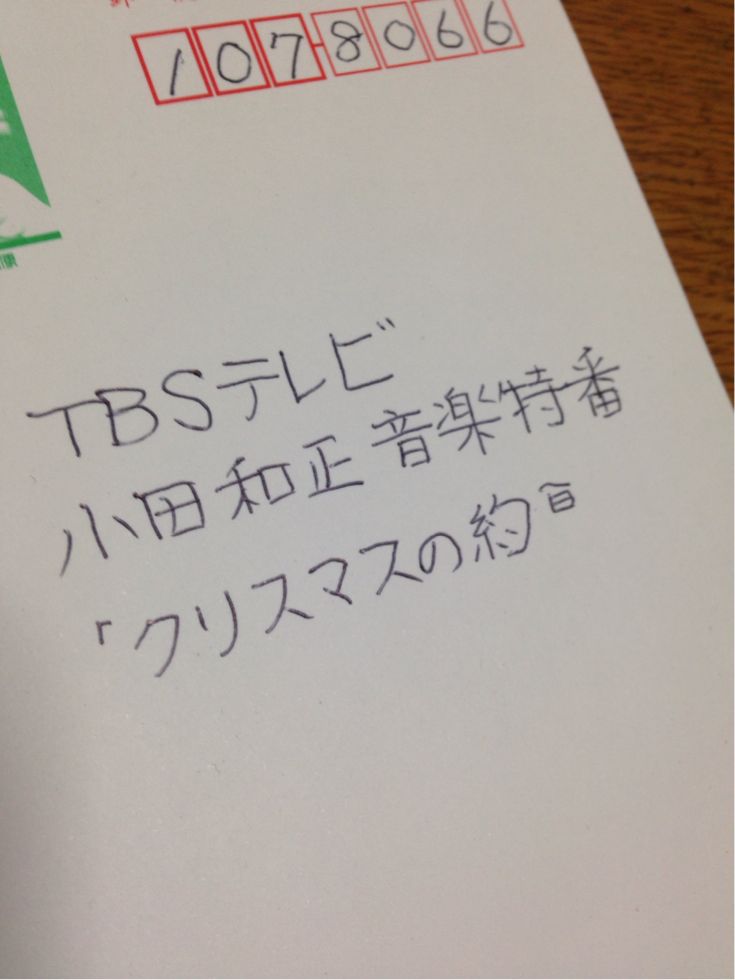 107-8066
TBSテレビ
小田和正音楽特番
「クリスマスの約